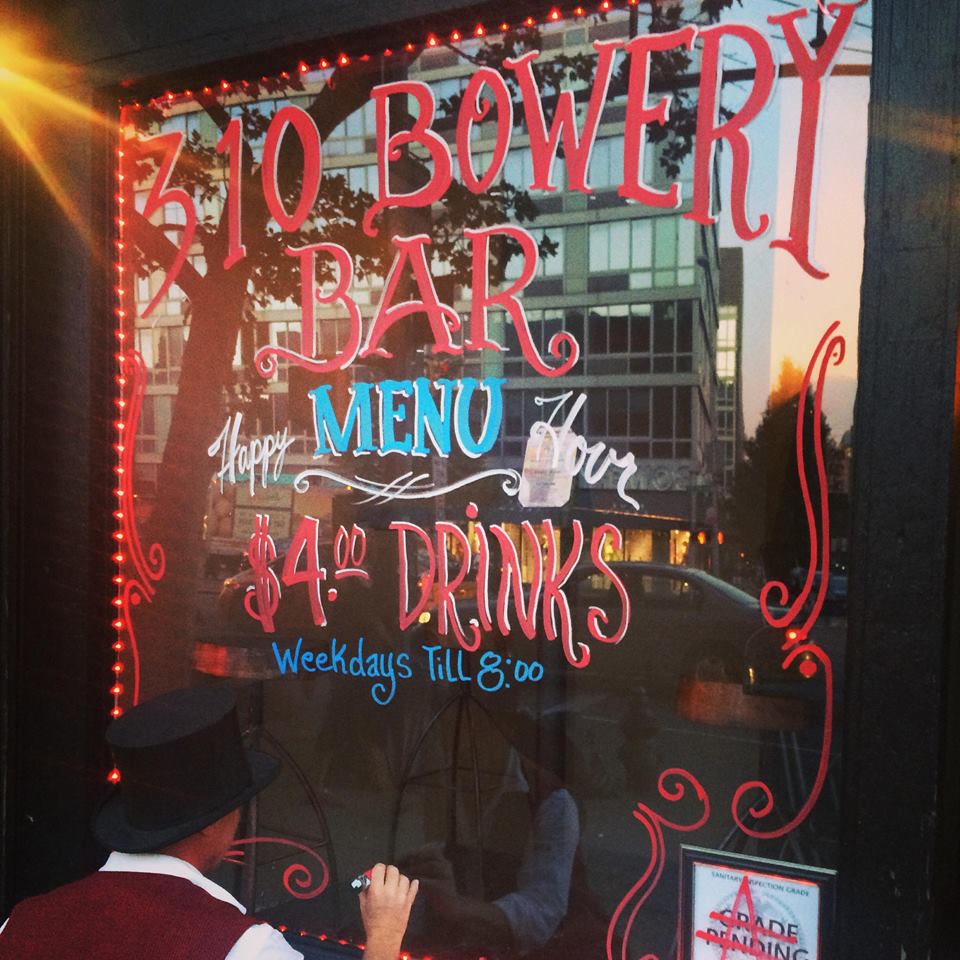 310 BOWERY
BAR
Happy MENU Hour
$4.00 DRiNKS
Weekdays Till 8:00
SANITARY INSPECTION GRADE
A
GRADE
PENDING